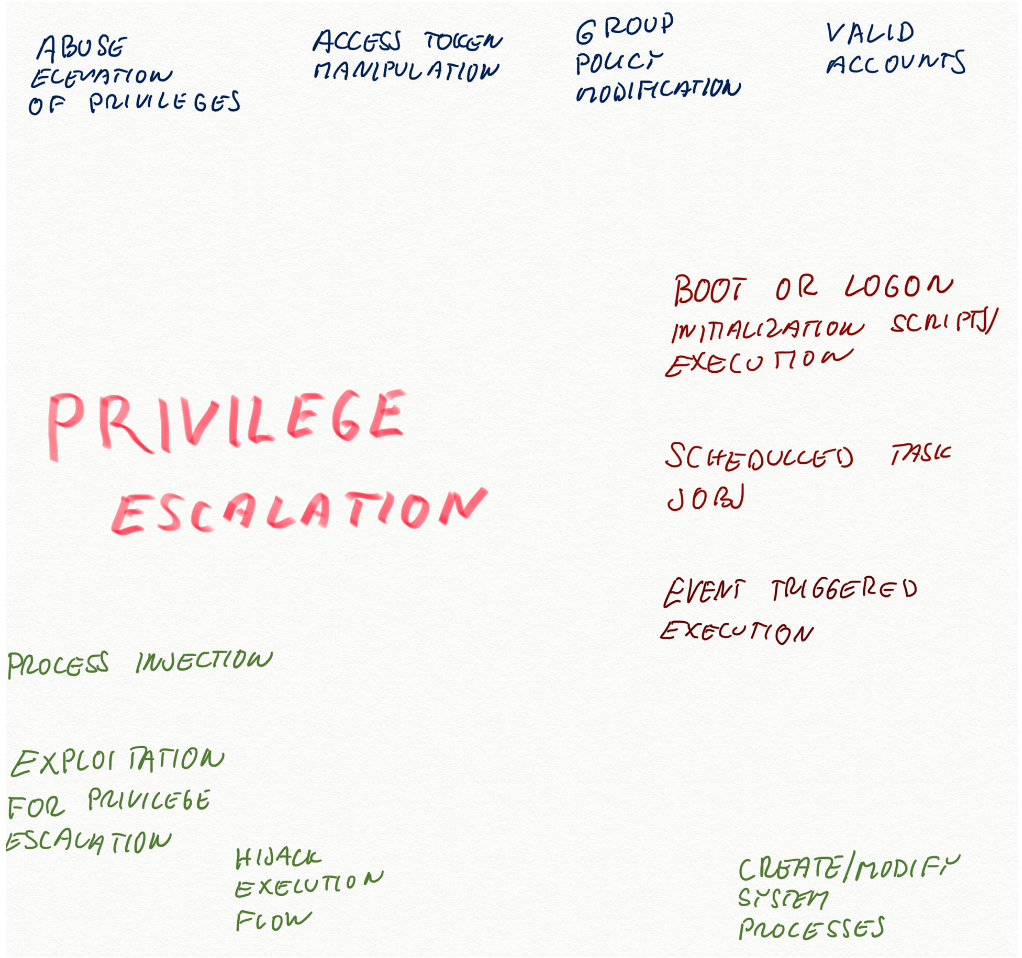 ABUSE
ELEVATION
OF PRIVILEGES
ACCESS TOKEN
MANIPULATION
GROUP
POLICY
MODIFICATION
VALID
ACCOUNTS
BOOT OR LOGON
INITIALIZATION SCRIPTS/
EXECUTION
PRIVILEGE
ESCALATION
SCHEDULLED TASK
JOBS
EVENT TRIGGERED
EXECUTION
PROCESS INJECTION
EXPLOITATION
FOR PRIVILEGE
ESCALATION
HIJACK
EXECUTION
FLOW
CREATE/MODIFY
SYSTEM
PROCESSES